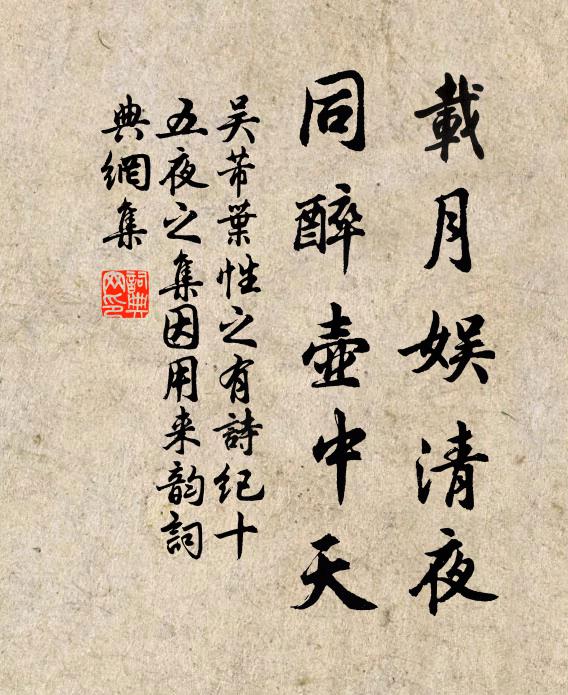 載月娱清夜
同醉壺中天
吴芾葉性之有詩紀十
五夜之集因用来韵詞
典網集
詞典网印